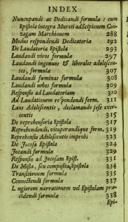 INDEX
Nuncupandi ac Dedicandi formula : cum
Epistola integra Mureti ad Scipionem Gon-
zagam Marchionem 288
Modus respondendi Dedicatoria 292
De Laudatoria Epistola 293
Laudandi vires formula 297
Laudandi ingenuos & liberales adolescen-
tes, formula 307
Laudandi feminas formula 308
Laudandi urbes formula 309
Responsio ad Laudatoriam
Ad Laudationem respondendi form. 311
Laus Adolescentis, declamando fese exer-
centis 315
De Reprehensoria Epistola 317
Reprehendendi, vituperandique form. 319
Reprehensio Adolescentis improbi 323
De Jocosa Epistola 324
Jocandi formula 329
Responsio ad Jocosam Epist. 331
De Mista, seu composita, Epistola 334
Transitionum formula 335
Connectendi formula 337
Longiorem narrationem vel Epistolam pre-
cidendi formula 338
Epi-